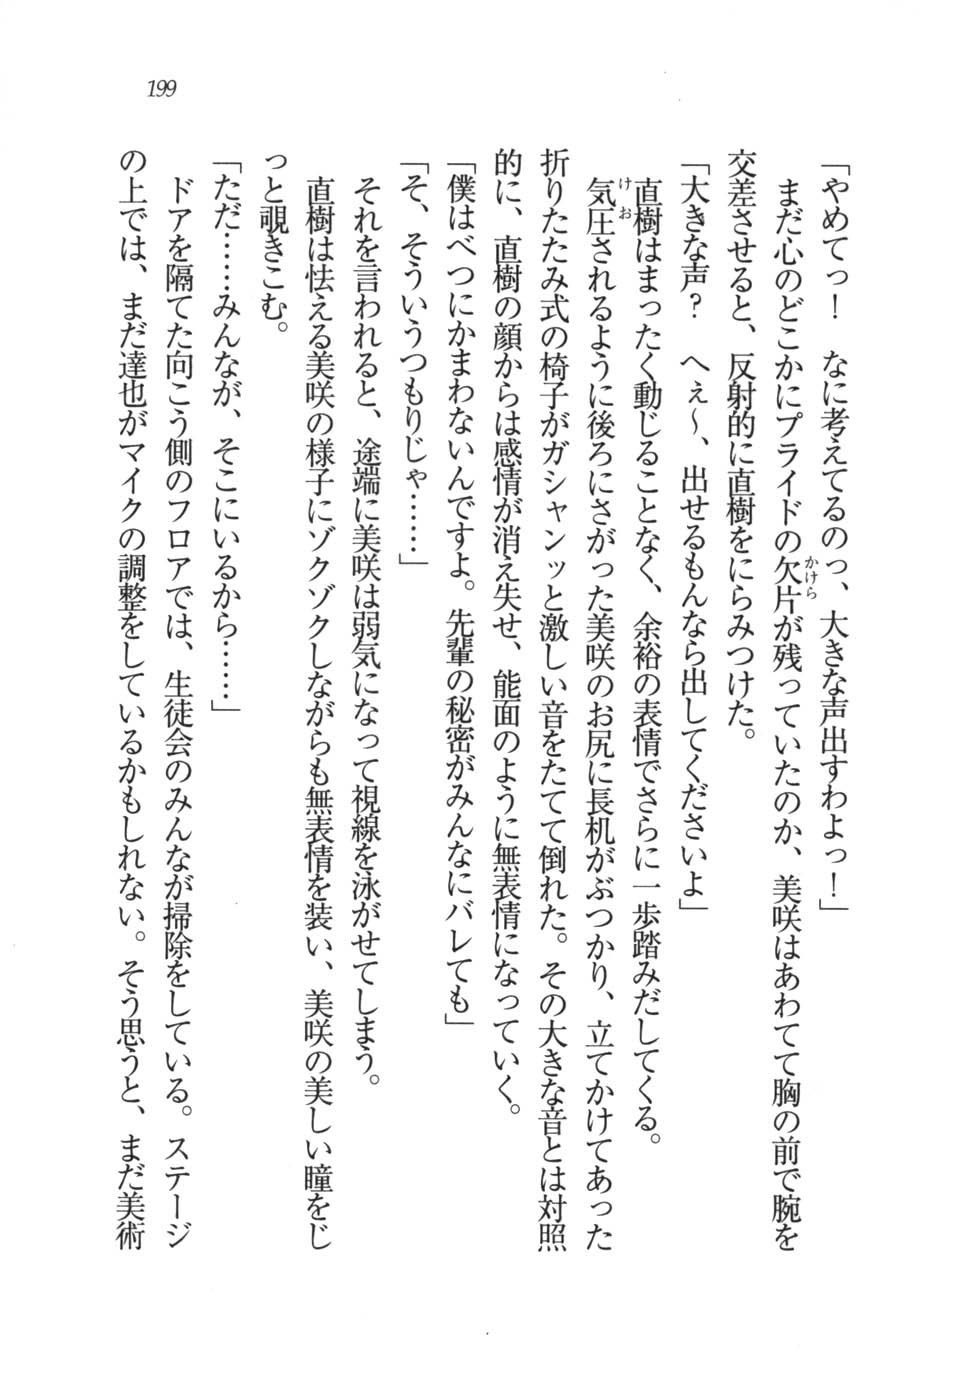 199
「やめてっ！　なに考えてるのっ、大きな声出すわよっ！」
まだ心のどこかにプライドの欠片が残っていたのか、美咲はあわてて胸の前で腕を
交差させると、反射的に直樹をにらみつけた。
「大きな声？　へぇ〜、出せるもんなら出してくださいよ」
直樹はまったく動じることなく、余裕の表情でさらに一歩踏みだしてくる。
気圧されるように後ろにさがった美咲のお尻に長机がぶつかり、立てかけてあった
折りたたみ式の椅子がガシャンッと激しい音をたてて倒れた。その大きな音とは対照
的に、直樹の顔からは感情が消え失せ、能面のように無表情になっていく。
「僕はべつにかまわないんですよ。先輩の秘密がみんなにバレても」
「そ、そういうつもりじゃ……」
それを言われると、途端に美咲は弱気になって視線を泳がせてしまう。
直樹は怯える美咲の様子にゾクゾクしながらも無表情を装い、美咲の美しい瞳をじ
っと覗きこむ。
「ただ……みんなが、そこにいるから……」
ドアを隔てた向こう側のフロアでは、生徒会のみんなが掃除をしている。ステージ
の上では、まだ達也がマイクの調整をしているかもしれない。そう思うと、まだ美術